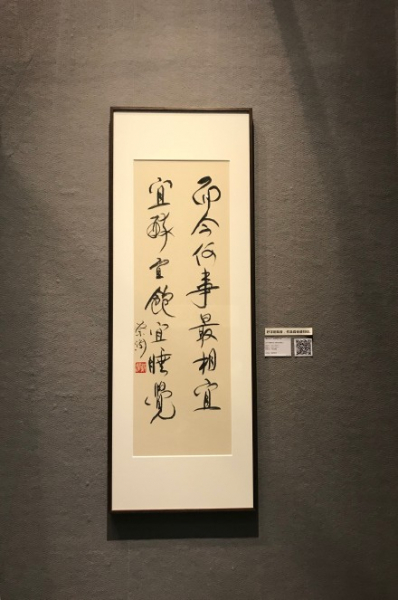 而今何事最相宜
宜醉宜飽宜睡覺
蔡瀾